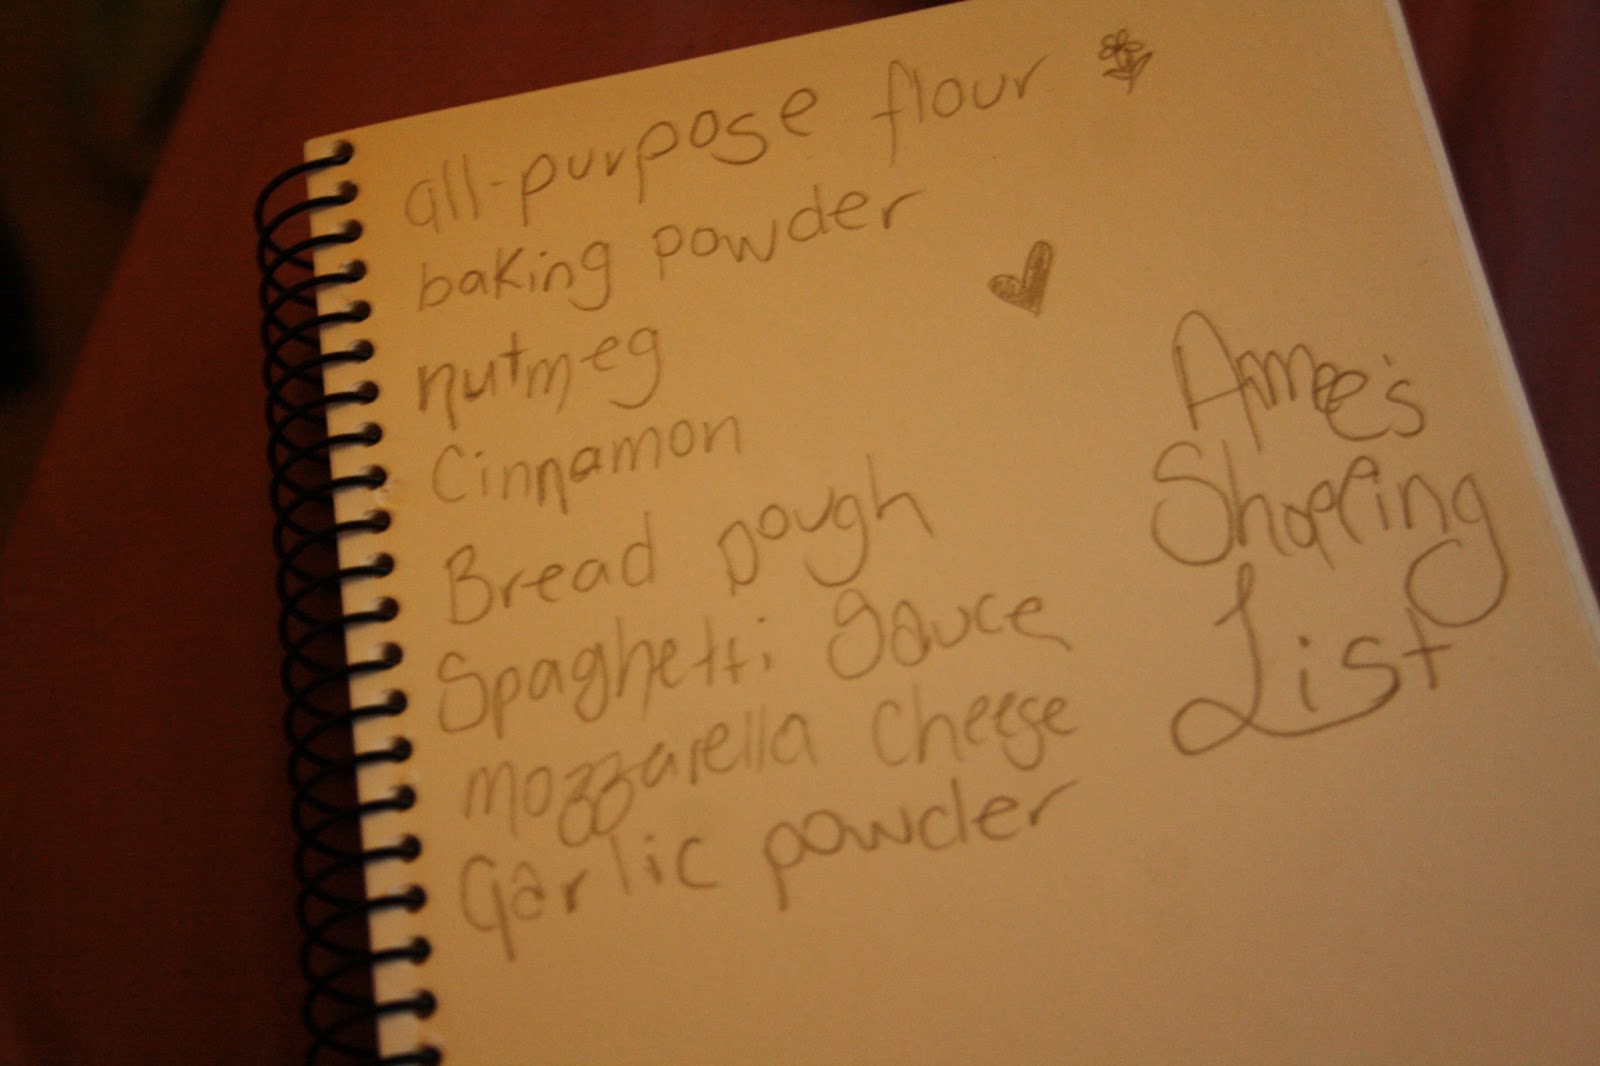 all-purpose flour
baking powder
nutmeg
Cinnamon
Bread Dough
Spaghetti Sauce
mozzarella cheese
Garlic powder
Aimee's
Shopping
List